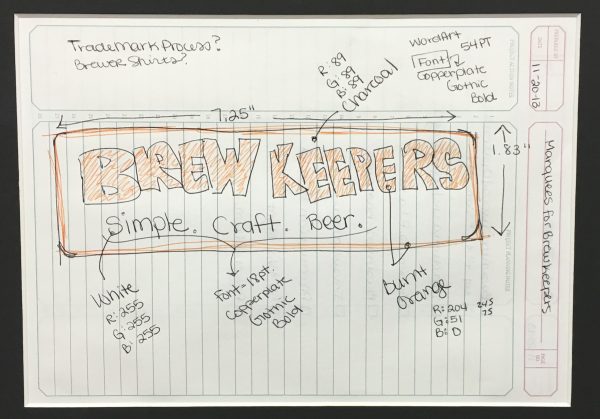 Trademark Process?
Brewer Shirts?
WordArt
54PT
Font
Copperplate
Gothic
Bold
R: 89
G: 89
B: 89
Charcoal
DATE
11-20-13
7.25"
1.83"
BREW KEEPERS
Simple. Craft. Beer.
White
R: 255
G: 255
B: 255
Font = 18pt.
Copperplate
Gothic
Bold
Burnt
Orange
R: 204
G: 51
B: 0
245
75
Marquees for Brewkeepers
PAGE